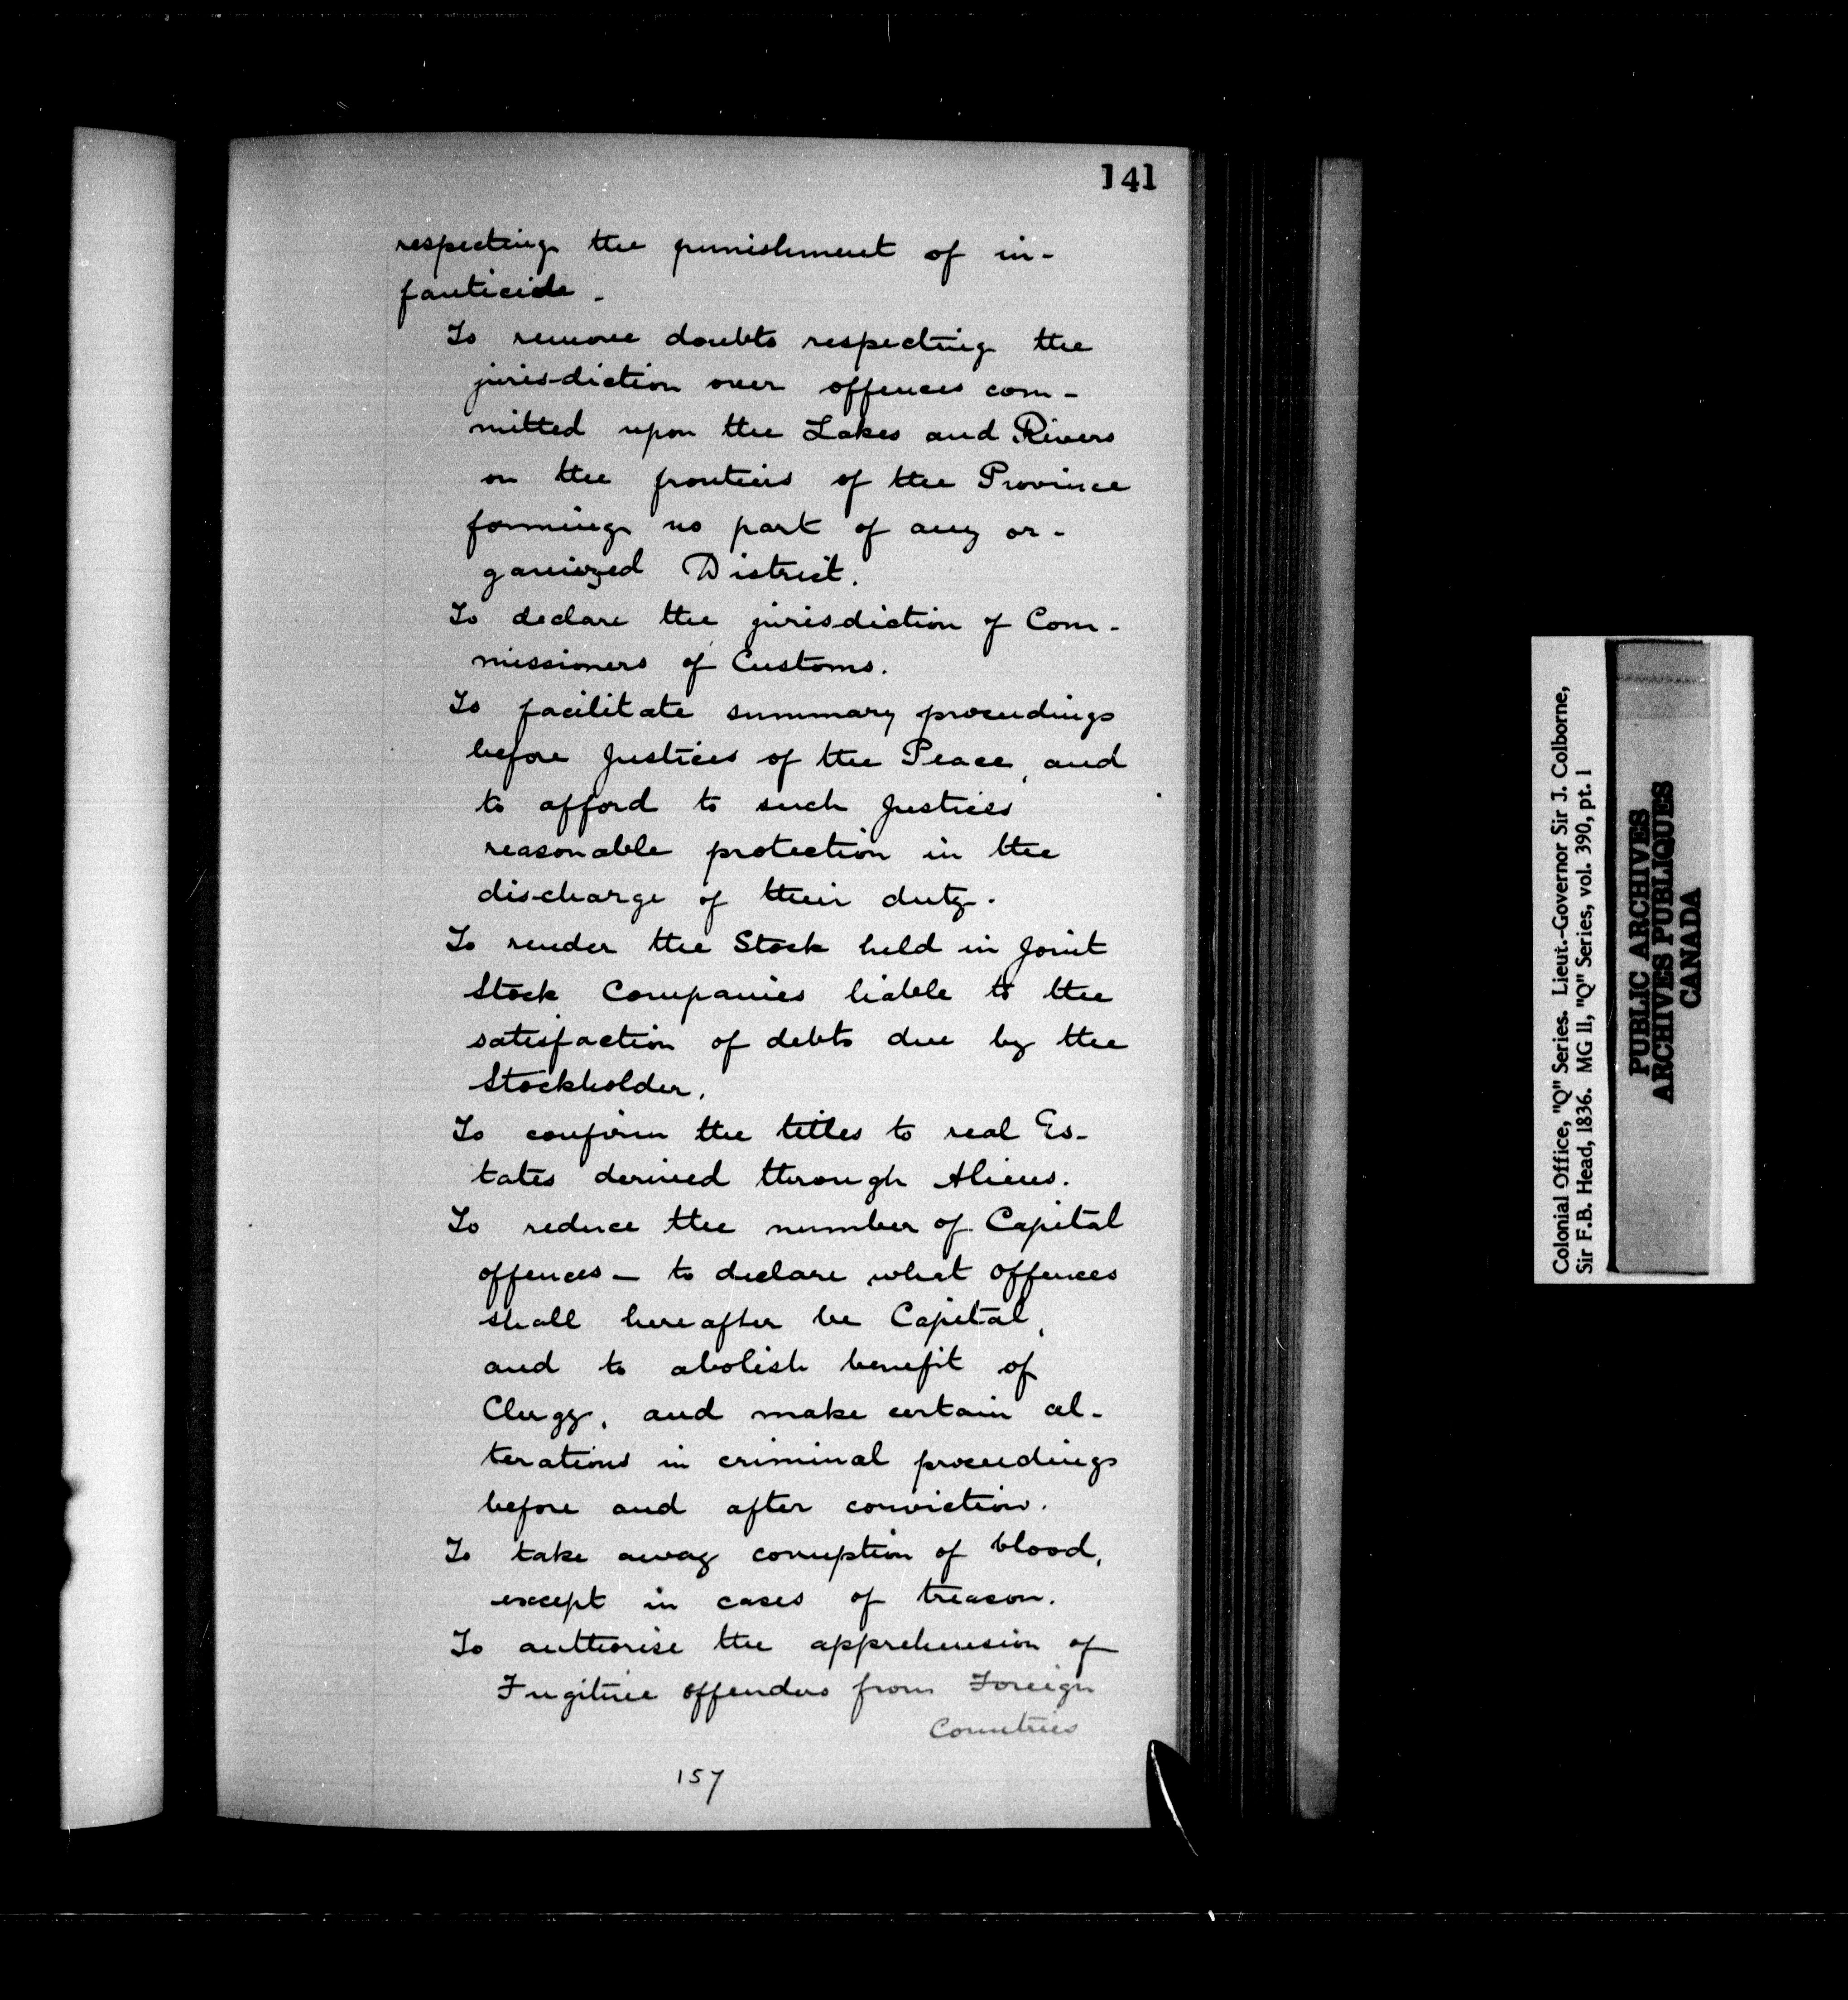 141
respecting the punishment of in-
fanticide.
To remove doubts respecting the
jurisdiction over offences com-
mitted upon the Lakes and Rivers
on the frontiers of the Province
forming no part of any or-
ganized District.
To declare the jurisdiction of Com-
missioners of Customs.
To facilitate summary proceedings
before Justices of the Peace, and
to afford to such Justices
reasonable protection in the
discharge of their duty.
To render the Stock held in Joint
Stock Companies liable to the
satisfaction of debts due by the
Stockholder.
To confirm the titles to real Es-
tates derived through Aliens.
To reduce the number of Capital
offences - to declare what offences
shall hereafter be Capital,
and to abolish benefit of
Clergy, and make certain al-
terations in criminal proceedings
before and after conviction.
To take away corruption of blood,
except in cases of treason.
To authorise the apprehension of
Fugitive offenders from Foreign
Countries
157
Colonial Office, "Q" Series. Lieut.-Governor Sir J. Colborne,
Sir F.B. Head, 1836. MG 11, "Q" Series, vol. 390, pt. 1
PUBLIC ARCHIVES
ARCHIVES PUBLIQUES
CANADA